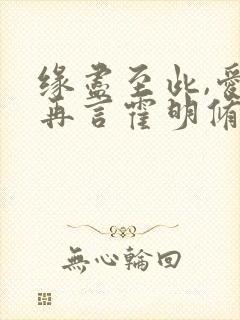 缘尽至此,爱
再言霍明脩
無心輪回